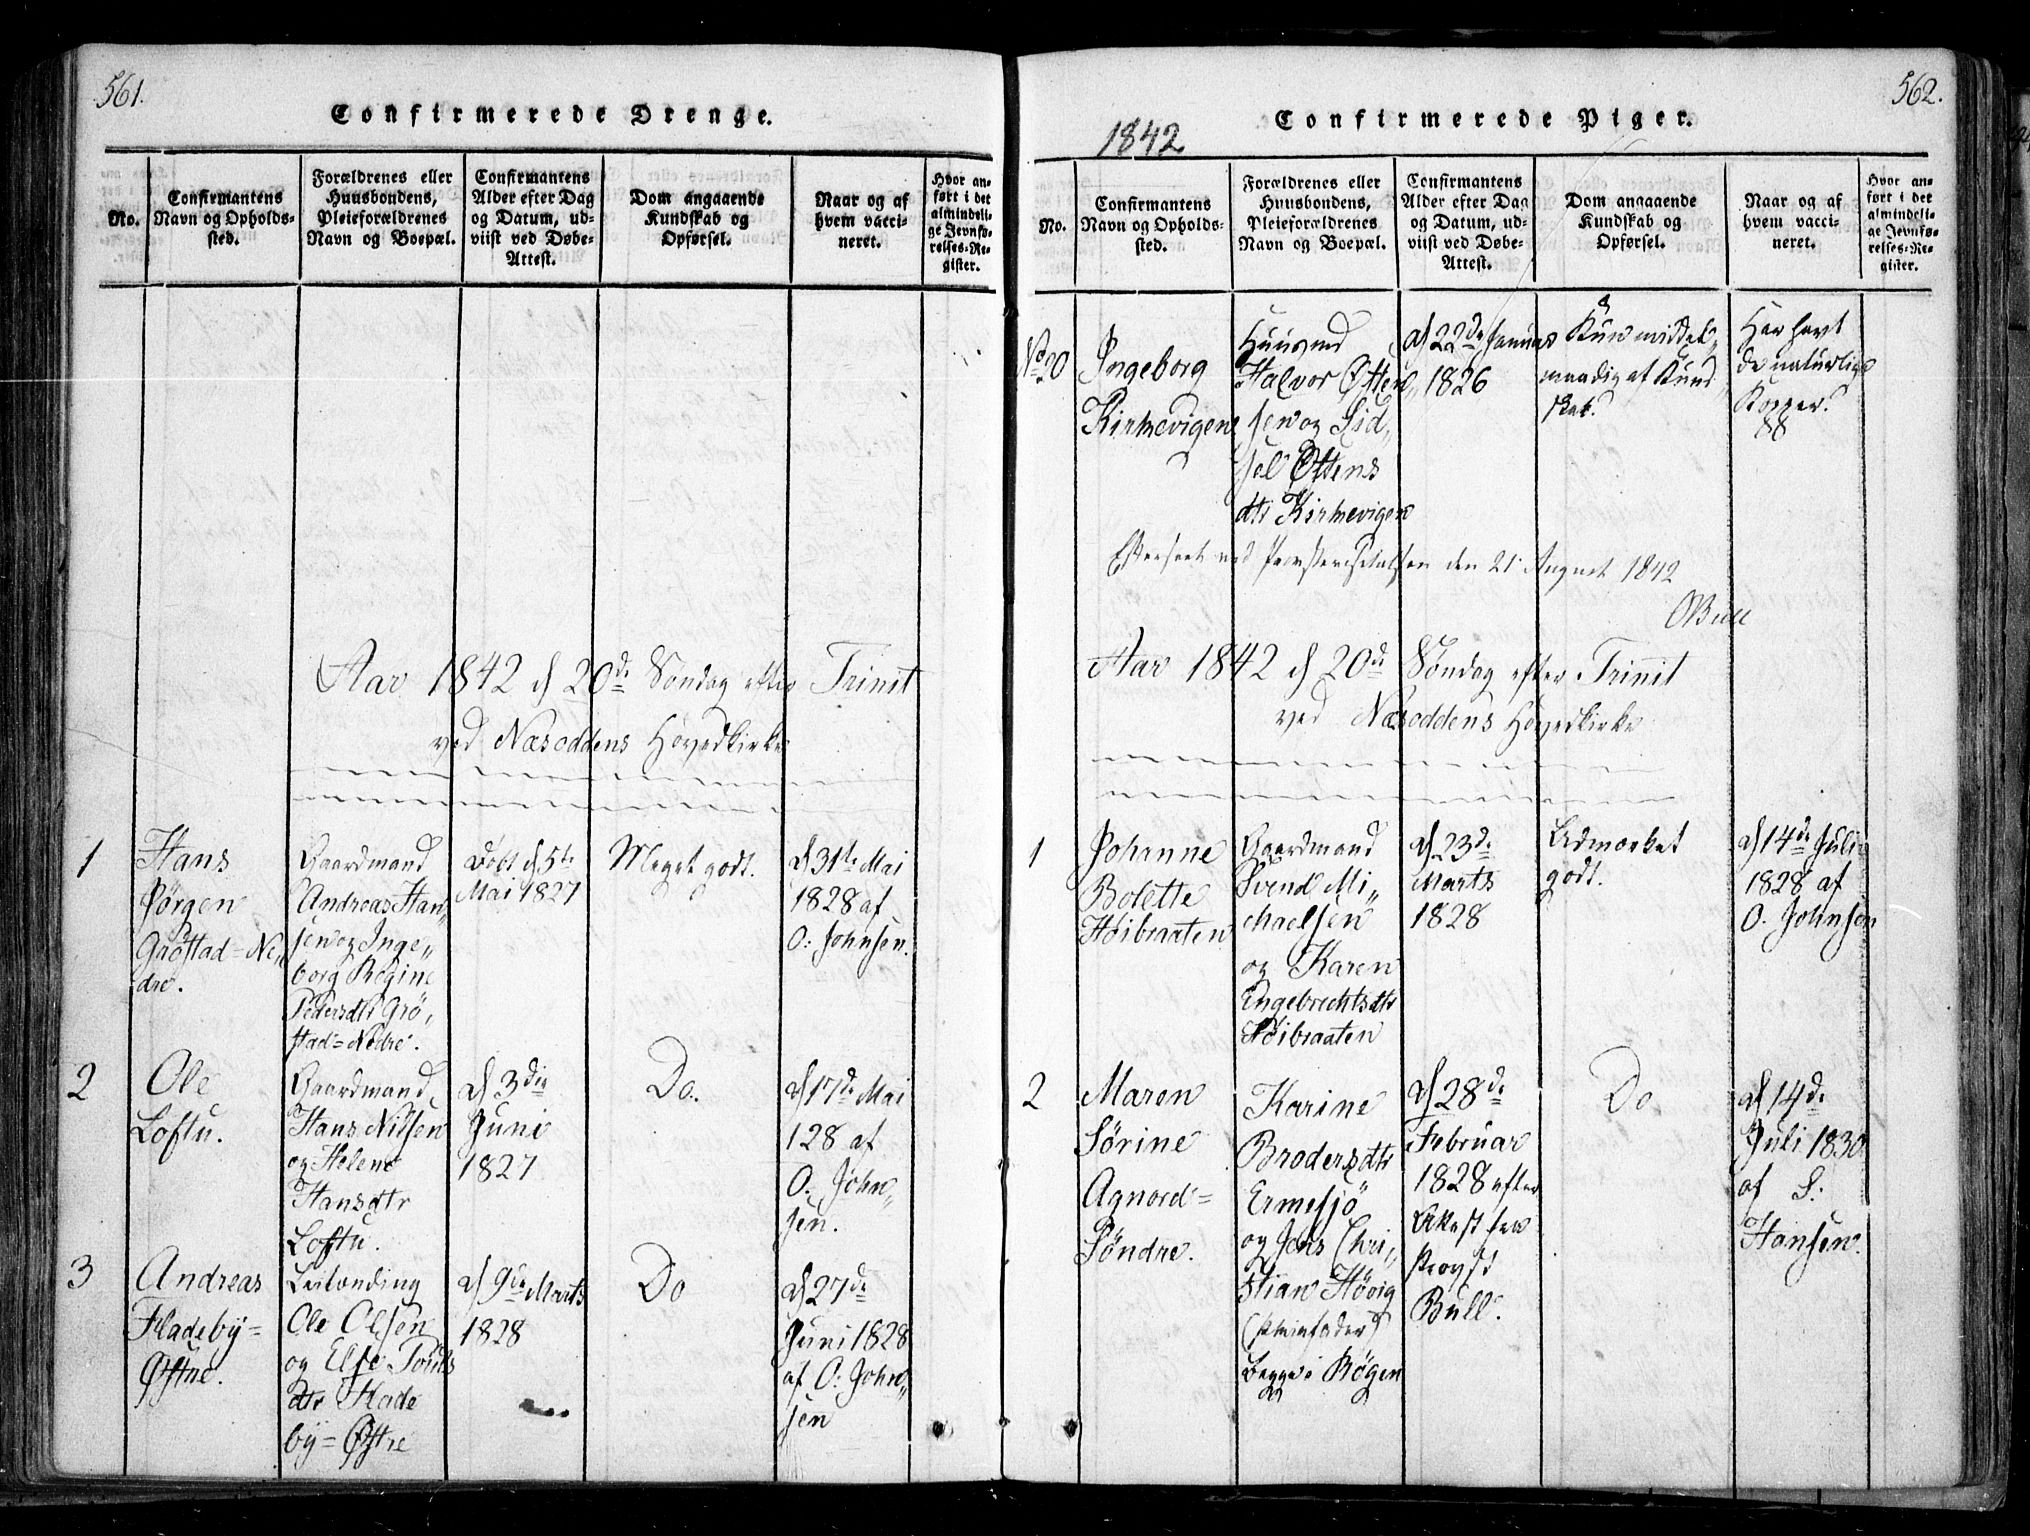 561.
Confirmerede Drenge.
No.
Confirmantens
Navn og Opholds-
sted.
Forældrenes eller
Huusbondens,
Pleieforældrenes
Navn og Boepæl.
Confirmantens
Alder efter Dag
og Datum, ud-
viist ved Døbe-
Attest.
Dom angaaende
Kundskab og
Opførsel.
Naar og af
hvem vacci-
neret.
Hvor an-
ført i det
almindeli-
ge Jevnfø-
relses-Re-
gister.
Aar 1842 d 20de Søndag efter Trinit
ved Næsoddens Hovedkirke
1
Hans
Jørgen
Grøstad=Ne„
dre.
Gaardmand
Andreas Han„
sen og Inge„
borg Regine
Pedersdtr Grø„
stad=Nedre.
Døbt d 5te
Mai 1827
Meget godt.
d 31te Mai
1828 af
O. Johnsen.
2
Ole
Loftu.
Gaardmand
Hans Nilsen
og Helene
Hansdtr
Loftu.
d 3die
Juni
1827
Do.
d 17de Mai
128 af
O. John„
sen.
3
Andreas
Fladeby=
Østre.
Leilænding
Ole Olsen
og Else
dtr Flade
by=Østre
d 9de Marts
1828
Do
d 27de
Juni 1828
af O: John„
sen
562.
Confirmerede Piger.
1842
No.
Confirmantens
Navn og Opholds-
sted.
Forældrenes eller
Huusbondens,
Pleieforældrenes
Navn og Boepæl.
Confirmantens
Alder efter Dag
og Datum, ud-
viist ved Døbe-
Attest.
Dom angaaende
Kundskab og
Opførsel.
Naar og af
hvem vacci-
neret.
Hvor an-
ført i det
almindeli-
ge Jevnfø-
relses-Re-
gister.
No 20
Ingeborg
Kirkevigen
Huusmd
Halvor Otten„
sen og Sid„
sel Ottens
dtr Kirkevigen
d 22de Januar
1826
Kun middel„
maadig af Kund
skab.
Har havt
de naturlige
Kopper.
Efterseet ved Provstevisitatsen den 21 August 1842
OBull
Aar 1842 d 20de Søndag efter Trinit
ved Næsoddens Hovedkirke
1
Johanne
Bolette
Høibraaten
Gaardmand
Svend Mi„
chaelsen
og Karen
Engebrechtsdtr
Høibraaten
d 23de
Marts
1828
Udmærket
godt.
d 14de Juli
1828 af
O. Johnsen
2
Maren
Sørine
Agnord=
Søndre.
Karine
Brodersdtr
Ermesjö
og Jens Chri„
stian Høvig
(Steinfader)
begge i Røgen
d 28de
Februar
1828 efter
Attest fra
Provst
Bull.
Do
d 14de
Juli 1830
af S:
Hansen.